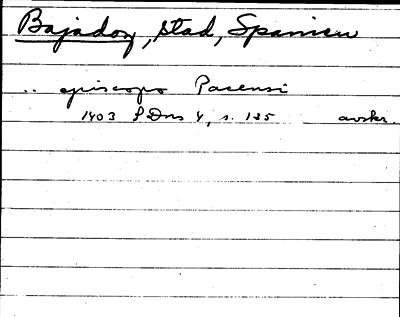 Bajadoz, stad, Spanien
.. episcopo Pacensi
1403 SDns 4, s. 125 avskr.